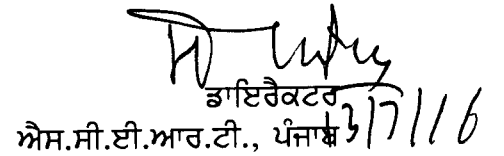 ਡਾਇਰੈਕਟਰ
ਐਸ.ਸੀ.ਈ.ਆਰ.ਟੀ., ਪੰਜਾਬ 13/7/16